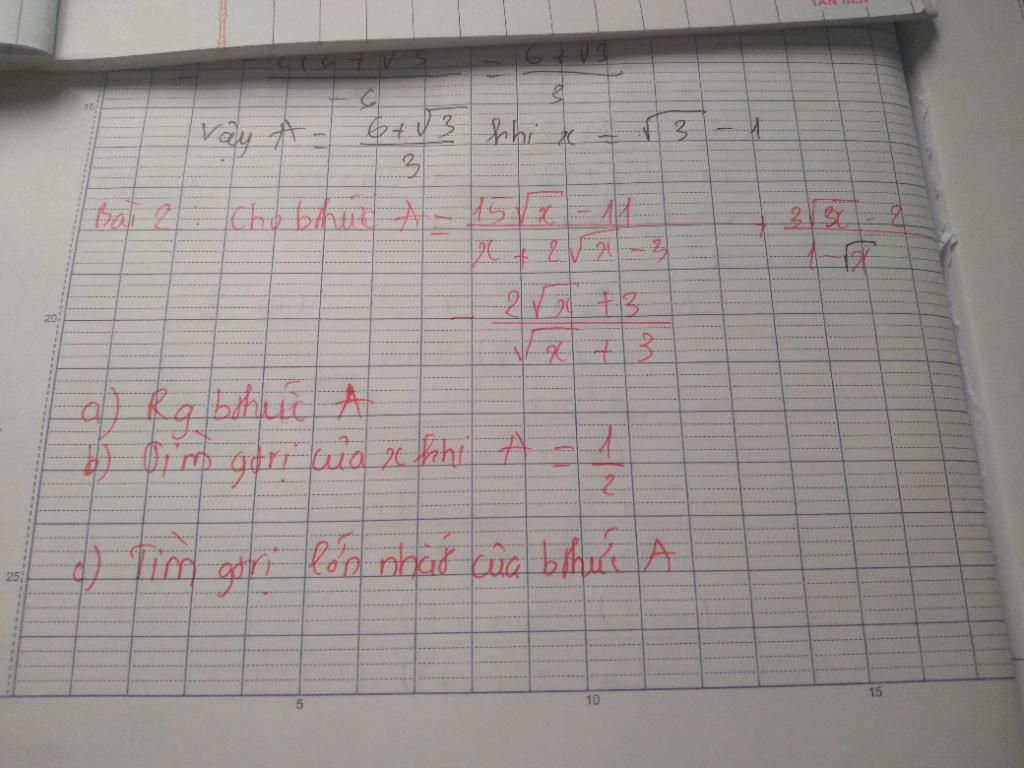 6+√3
3
Vậy A = 6+√3 / 3 khi x = √3 - 1
Bài 2 : Cho bthức A = 15√x - 11 / x + 2√x - 3 + 3√x - 2 / 1 - √x
- 2√x + 3 / √x + 3
a) Rg bthức A
b) Tìm gtrị của x khi A = 1/2
d) Tìm gtrị lớn nhất của bthức A
15
20
25
5 10 15